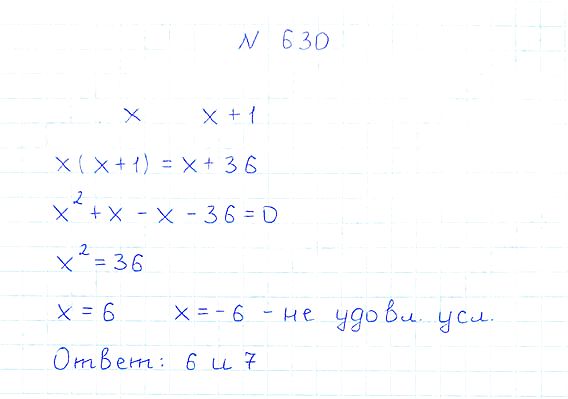 N 630
x x + 1
x ( x + 1) = x + 36
x² + x - x - 36 = 0
x² = 36
x = 6 x = - 6 - не удовл. усл.
Ответ: 6 и 7